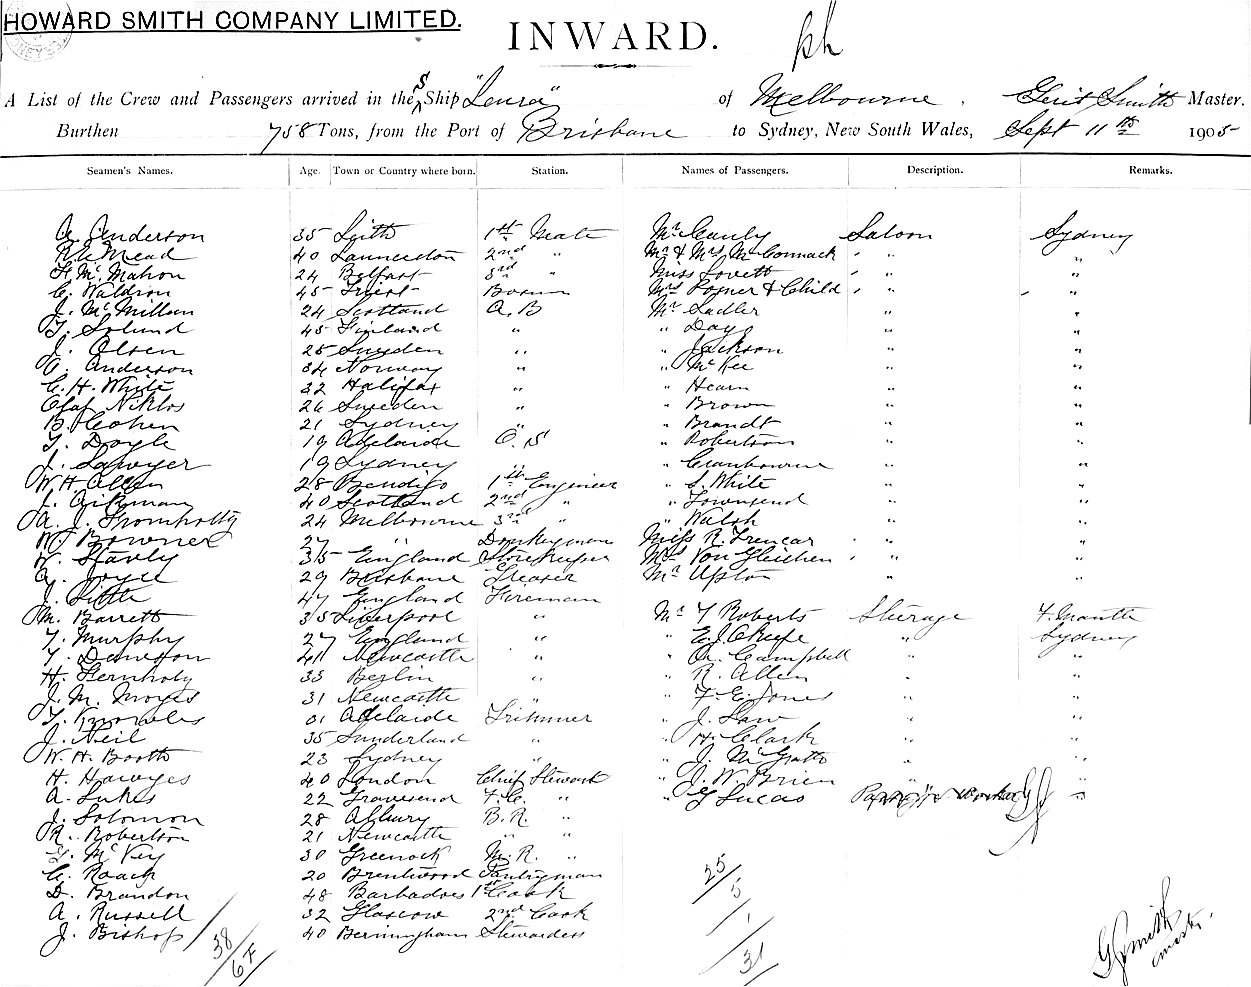 HOWARD SMITH COMPANY LIMITED.
INWARD.
A List of the Crew and Passengers arrived in the S Ship "Leura" of Melbourne, Smith Master.
Burthen 758 Tons, from the Port of Brisbane to Sydney, New South Wales, Sept 11th 1905
Seamen's Names. Age. Town or Country where born. Station. Names of Passengers. Description. Remarks.
A. Anderson 35 Leith 1st Mate Mr Cauly Saloon Sydney
Mead 40 Launceston 2nd " Mr & Mrs McCormack " "
Mc Mahon 24 Belfast 3rd " Miss Lovett " "
C. Waldron 45 Triest Bosun Mrs Posner & Child " "
J. McMillan 24 Scotland A.B Mr Sadler " "
45 Finland " " Day " "
J. Olsen 25 Sweden " " Jackson " "
A. Anderson 34 Norway " " McKee " "
C. H. White 32 Halifax " " Hearn " "
Olaf Niklos 26 Sweden " " Brown " "
B. Cohen 21 Sydney " " Brandt " "
T. Doyle 19 Adelaide O.S " Robertson " "
J. Sawyer 19 Sydney " Cranbourne " "
W H Allen 28 Bendigo 1st Engineer " S. White " "
J. Aikman 40 Scotland 2nd " " Townsend " "
A. J. Fromholtz 24 Melbourne 3rd " " Walsh " "
27 " Donkeyman Miss R. " "
35 England Storekeeper Mrs Von Gleichen " "
Joyce 29 Brisbane Greaser Mr Upton " "
J. Little 47 England Fireman
M. Barrett 35 Liverpool " Mr T Roberts Sterage F. Mantle
T. Murphy 27 England " " E. J. O'Keefe " Sydney
T. Davison 41 Newcastle " " Campbell " "
H. 33 Berlin " " R. Allen " "
J. M. Moyes 31 Newcastle " " F. E. Jones " "
T. Knowles Adelaide Trimmer " J. Law " "
J. Neil 35 Sunderland " " H. Clark " "
W. H. Booth 23 Sydney " " J. McGrath " "
H. Hawyes 40 London Chief Steward " J. W. Brien " "
A. Sukes 22 Gravesend F.C. " " G Lucas "
J. Solomon 28 Albury B.R. "
R. Robertson 21 Newcastle " "
McKey 30 Greenock M.R. "
C. Roach 20 Brentwood Pantryman
D. Brandon 48 Barbadoes 1st Cook
A. Russell 32 Glascow 2nd Cook
J. Bishop 40 Berminghan Stewardess
38
6 F
25
5
1
31
G Smith